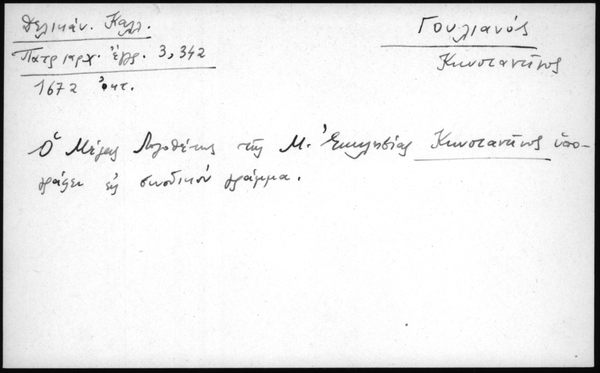 Δελικάν. Καλλ.
Πατριαρχ. ἔγγρ. 3, 342
1672 ὀκτ.
Γουλιανός
Κωνσταντῖνος
Ὁ Μέγας Λογοθέτης τῆς Μ. Ἐκκλησίας Κωνσταντῖνος ὑπο-
γράφει εἰς συνοδικόν γράμμα.